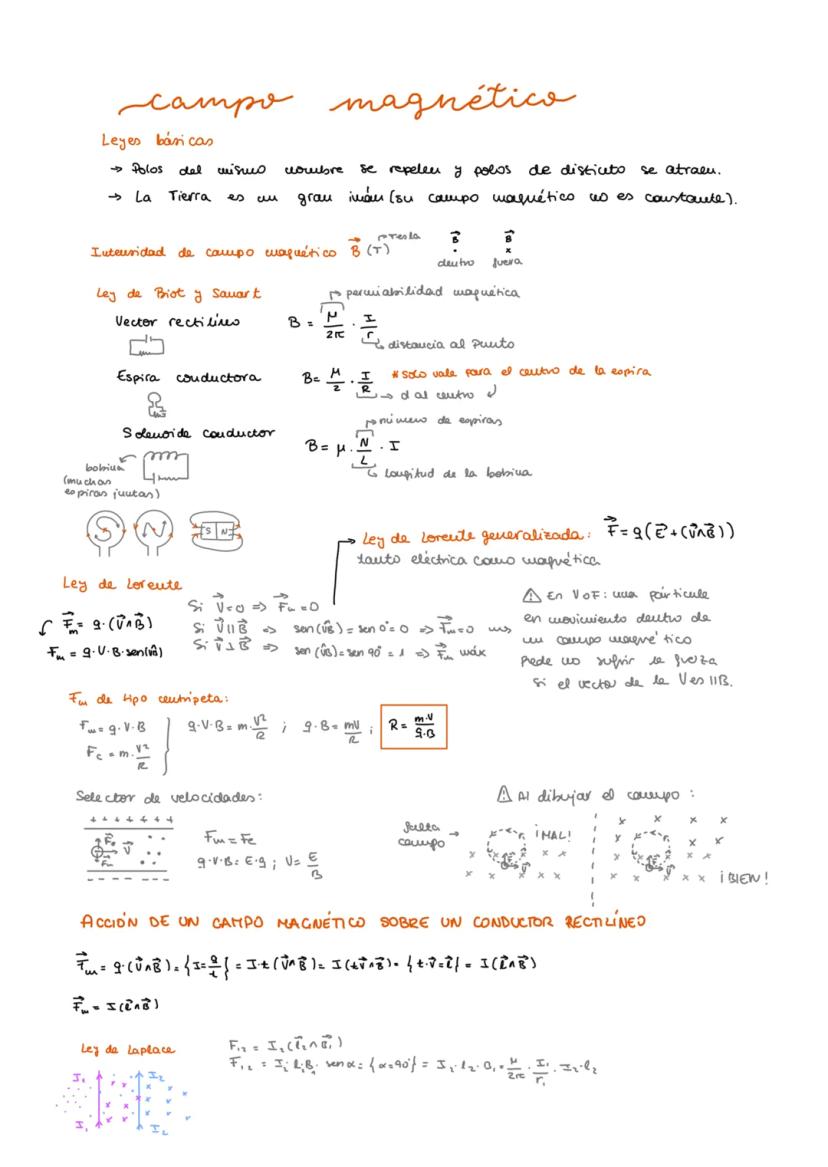 campo magnético
Leyes básicas
→ Polos del mismo nombre se repelen y polos de distinto se atraen.
→ La Tierra es un gran imán (su campo magnético no es constante).
Intensidad de campo magnético B⃗ (T) → Tesla
B⃗ · dentro
B⃗ x fuera
Ley de Biot y Savart
→ permiabilidad magnética
Vector rectilíneo B = μ/2π · I/r
→ distancia al punto
Espira conductora B = μ/2 · I/R * solo vale para el centro de la espira
→ d al centro
→ número de espiras
Solenoide conductor B = μ · N/L · I
→ Longitud de la bobina
bobina
(muchas
espiras juntas)
S N S N
→ Ley de Lorente generalizada: F⃗ = q(E⃗ + (v⃗∧B⃗))
tanto eléctrica como magnética
Ley de Lorente
F⃗m = q·(v⃗∧B⃗)
Fm = q·v·B·sen(vB)
Si v⃗ = 0 ⇒ F⃗m = 0
Si v⃗ || B⃗ ⇒ sen(vB) = sen 0° = 0 ⇒ F⃗m = 0
Si v⃗ ⊥ B⃗ ⇒ sen(vB) = sen 90° = 1 ⇒ F⃗m máx
⚠ En V o F: una partícula
en movimiento dentro de
un campo magnético
puede no sufrir la fuerza
si el vector de la V es || B.
Fm de tipo centrípeta:
Fm = q·v·B
Fc = m·v²/R
q·v·B = m·v²/R ; q·B = mv/R ; R = m·v/q·B
Selector de velocidades:
+ + + + + + +
F⃗e v⃗
F⃗m
− − − − − −
Fm = Fe
q·v·B = E·q ; v = E/B
⚠ Al dibujar el campo:
falta
campo →
¡MAL!
¡BIEN!
ACCIÓN DE UN CAMPO MAGNÉTICO SOBRE UN CONDUCTOR RECTILÍNEO
F⃗m = q·(v⃗∧B⃗) = {I = q/t} = I·t(v⃗∧B⃗) = I(tv⃗∧B⃗) = {t·v⃗ = l⃗} = I(l⃗∧B⃗)
F⃗m = I(l⃗∧B⃗)
Ley de Laplace
F₁₂ = I₂(l⃗₂∧B⃗₁)
F₁₂ = I₂·l₂·B₁·sen α = {α = 90°} = I₂·l₂·B₁ = μ/2π · I₁/r₁ · I₂·l₂
I₁ I₂
I₁ I₂